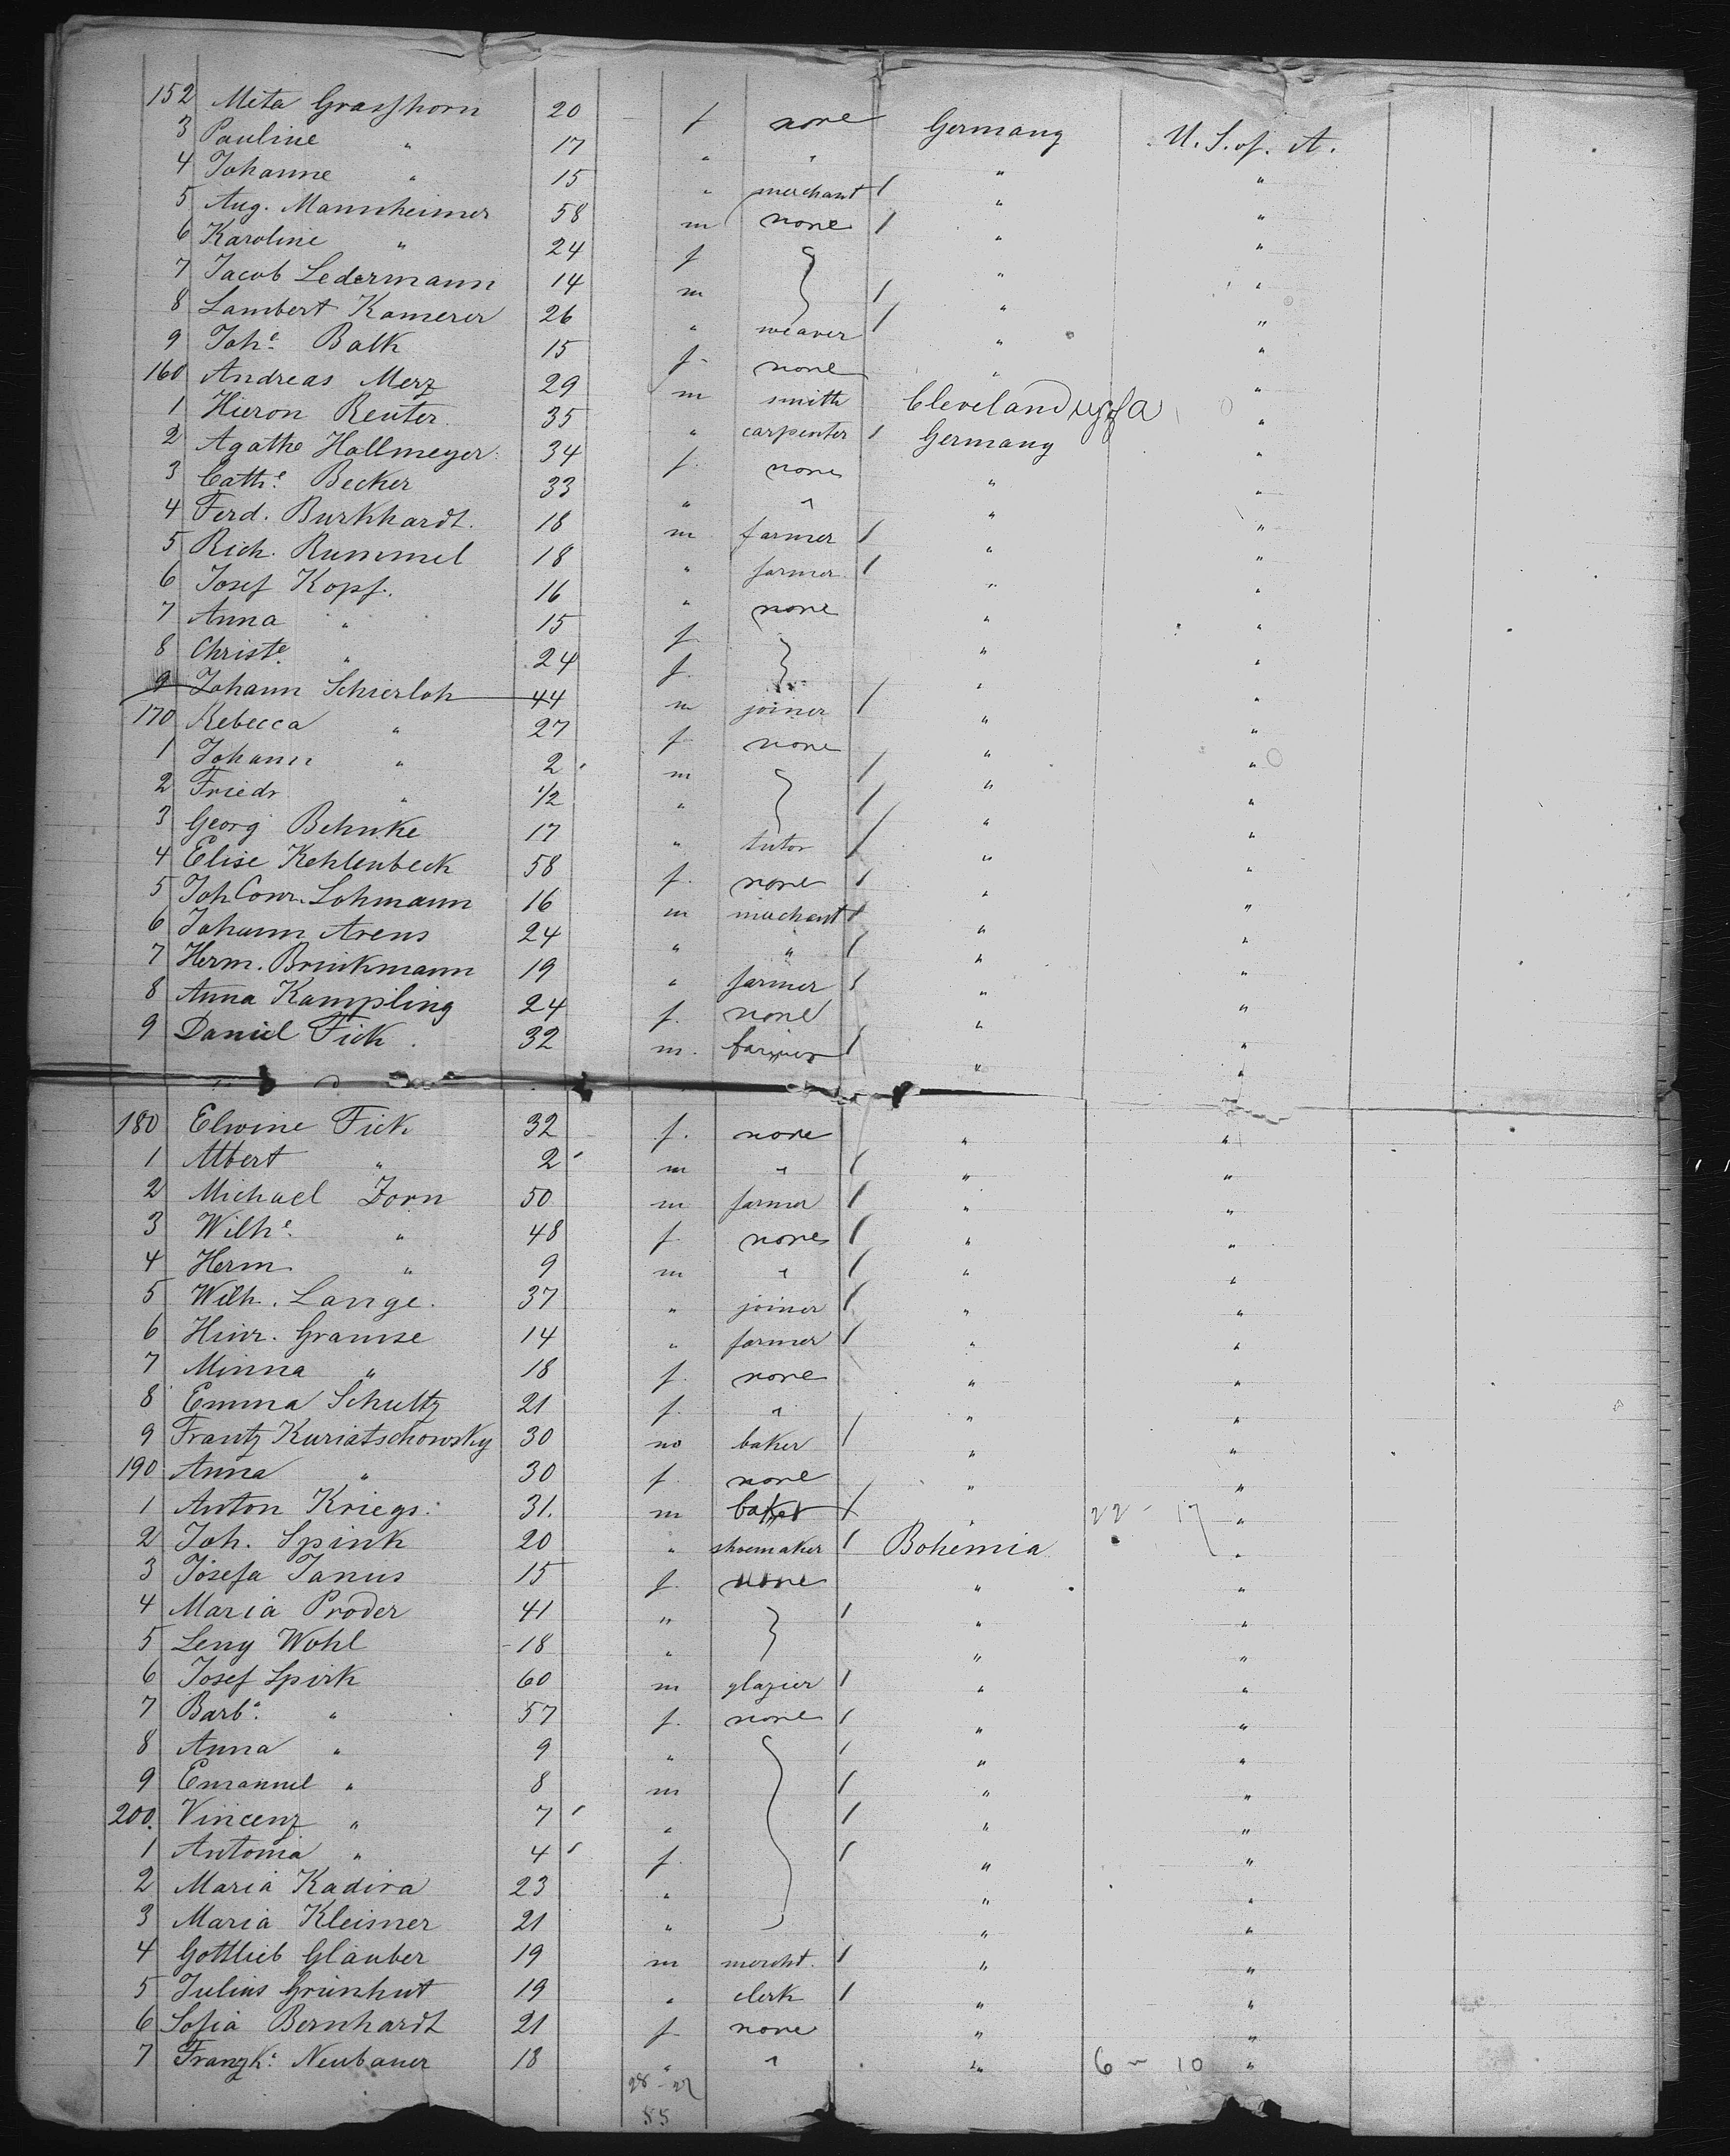 152 Meta Grasshorn 20 f none Germany U. S. of. A.
3 Pauline " 17 " " " "
4 Johanne " 15 " " "
5 Aug. Mannheimer 58 m merchant / " "
6 Karoline " 24 f none / " "
7 Jacob Ledermann 14 m } / " "
8 Lambert Kamerer 26 " weaver / " "
9 Johe. Balk 15 f none " "
160 Andreas Merz 29 m smith Cleveland usofa "
1 Hieron Reuter 35 " carpenter / Germany "
2 Agathe Hallmeyer 34 f. none " "
3 Cathe. Becker 33 " " " "
4 Ferd. Burkhardt. 18 m farmer / " "
5 Rich. Rummel 18 " farmer / " "
6 Josef Kopf. 16 " none " "
7 Anna " 15 f. " "
8 Christe. " 24 f. } " "
9 Johann Schierloh 44 m joiner / " "
170 Rebecca " 27 f none " "
1 Johann " 2 m / " "
2 Friedr " 1/2 " } / " "
3 Georg Behnke 17 " tutor / " "
4 Elise Kehlenbeck 58 f. none / " "
5 Joh Conr. Lohmann 16 m merchant / " "
6 Johann Arens 24 " " / " "
7 Herm. Brinkmann 19 " farmer / " "
8 Anna Kampling 24 f. none " "
9 Daniel Fick. 32 m. farmer / " "
180 Elwine Fick 32 f. none " "
1 Albert " 2 m " / " "
2 Michael Zorn 50 m farmer / " "
3 Wilhe. " 48 f none / " "
4 Herm. " 9 m " / " "
5 Wilh. Lange. 37 " joiner / " "
6 Hinr. Gramse 14 " farmer / " "
7 Minna " 18 f. none " "
8 Emma Schultz 21 f. " " "
9 Frantz Kuriatschowsky 30 m baker / " "
190 Anna " 30 f. none " "
1 Anton Kriegs. 31. m baker / " 22 - 17 "
2 Joh. Spirk 20 " shoemaker / Bohemia "
3 Josefa Janus 15 f. none " "
4 Maria Proder 41 " } / " "
5 Leny Wohl 18 " " "
6 Josef Spirk 60 m glazier / " "
7 Barba. " 57 f. none / " "
8 Anna " 9 " / " "
9 Emanuel " 8 m } / " "
200. Vincenz " 7 " / " "
1 Antonia " 4 f. / " "
2 Maria Kadira 23 " " "
3 Maria Kleisner 21 " " "
4 Gottlieb Glauber 19 m mercht. / " "
5 Julius Grünhut 19 " clerk / " "
6 Sofia Bernhardt 21 f none " "
7 Franzka. Neubauer 18 " " " 6 - 10 "
28 - 27
55